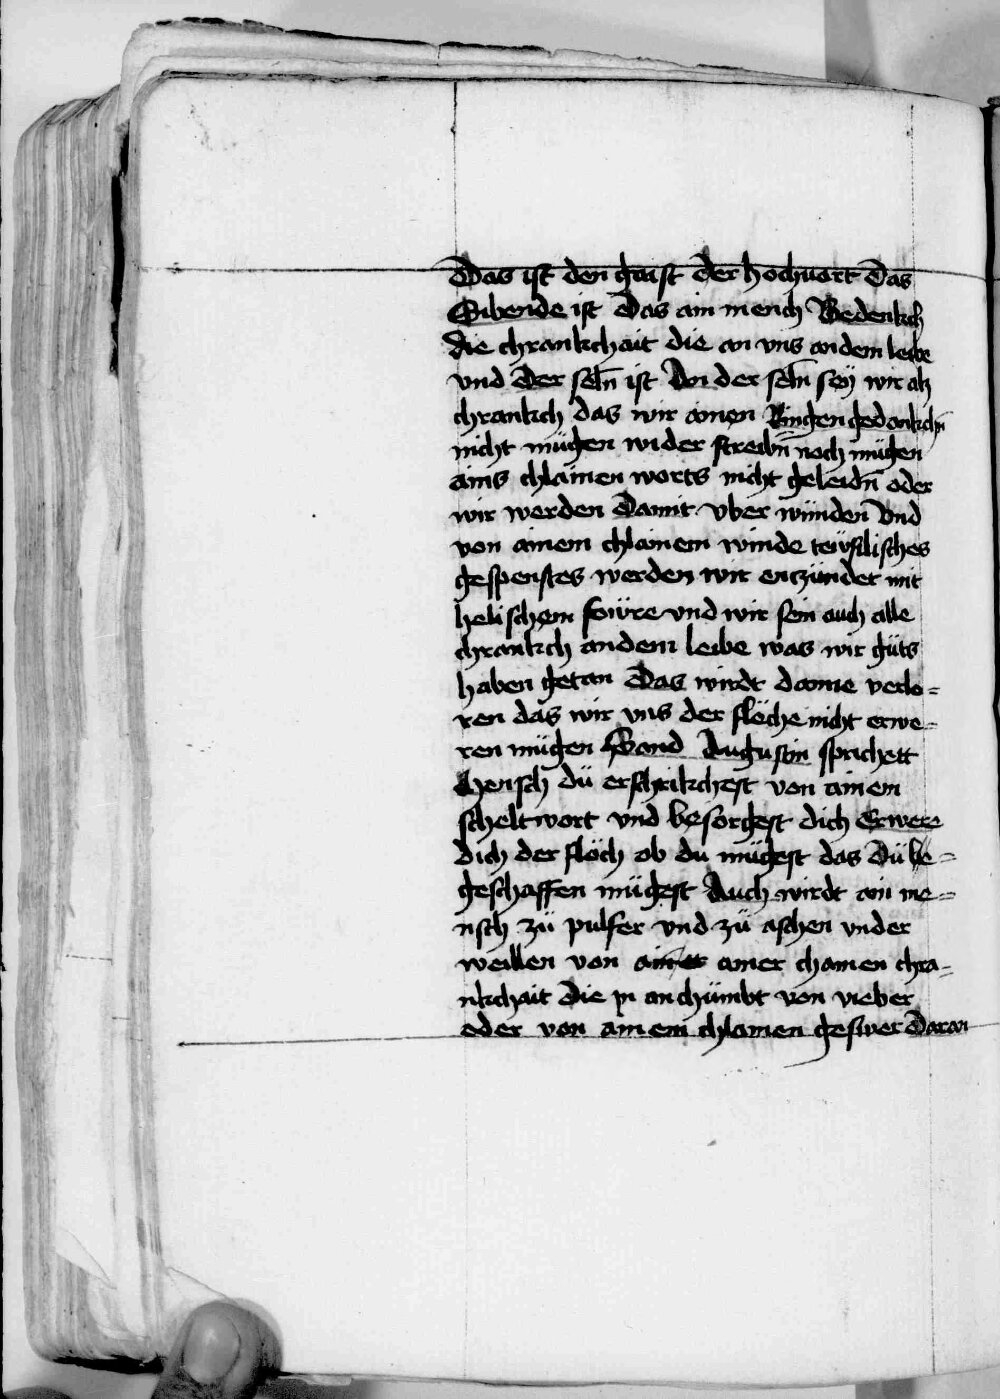 Das ist den gaist der hochuart Das
Sibende ist Das ain mench Bedenkch
die chrankchait die an vns an dem leibe
vnd Der seln̄ ist An der seln̄ seÿ wir als
chrankch das wir ainen Ringen gedankchn̄
nicht mügen wider streibn̄ noch mügen
ains chlainen worts nicht geleidn̄ oder
wir werden Damit vber wünden Vnd
von ainem chlainem winde teüflisches
gespenstes werden wir enczündet mit
helischem feiüre vnd wir sein auch alle
chrankch an dem leibe was wir güts
haben getan Das wirdt danne verlo=
ren das wir vns der flöche nicht erwe=
ren mügen Sand Augustin sprichett
Mensch dü erschrikchest von ainem
scheltwort vnd besorgest dich Erwere
dich der flöch ob du mügest das Dü be=
geschaffen mügest Auch wirdt ain me=
nsch zü pulfer vnd zü aschen vnder
weillen von ainer ainer chainen chra=
nkchait Die jn an chümbt von vieber
oder von ainem chlainen geswer Daran